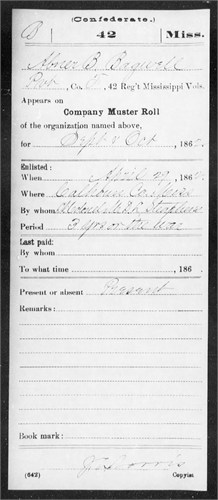 (Confederate.)
B 42 Miss.
Abner B. Bagwell
Pvt, Co. F, 42 Reg't Mississippi Vols.
Appears on
Company Muster Roll
of the organization named above,
for Sept & Oct, 186
Enlisted:
When April 29, 186
Where Calhoun Co. Miss
By whom
Period 3 yrs or the war
Last paid:
By whom
To what time , 186
Present or absent Present
Remarks:
Book mark:
(642) Copyist.